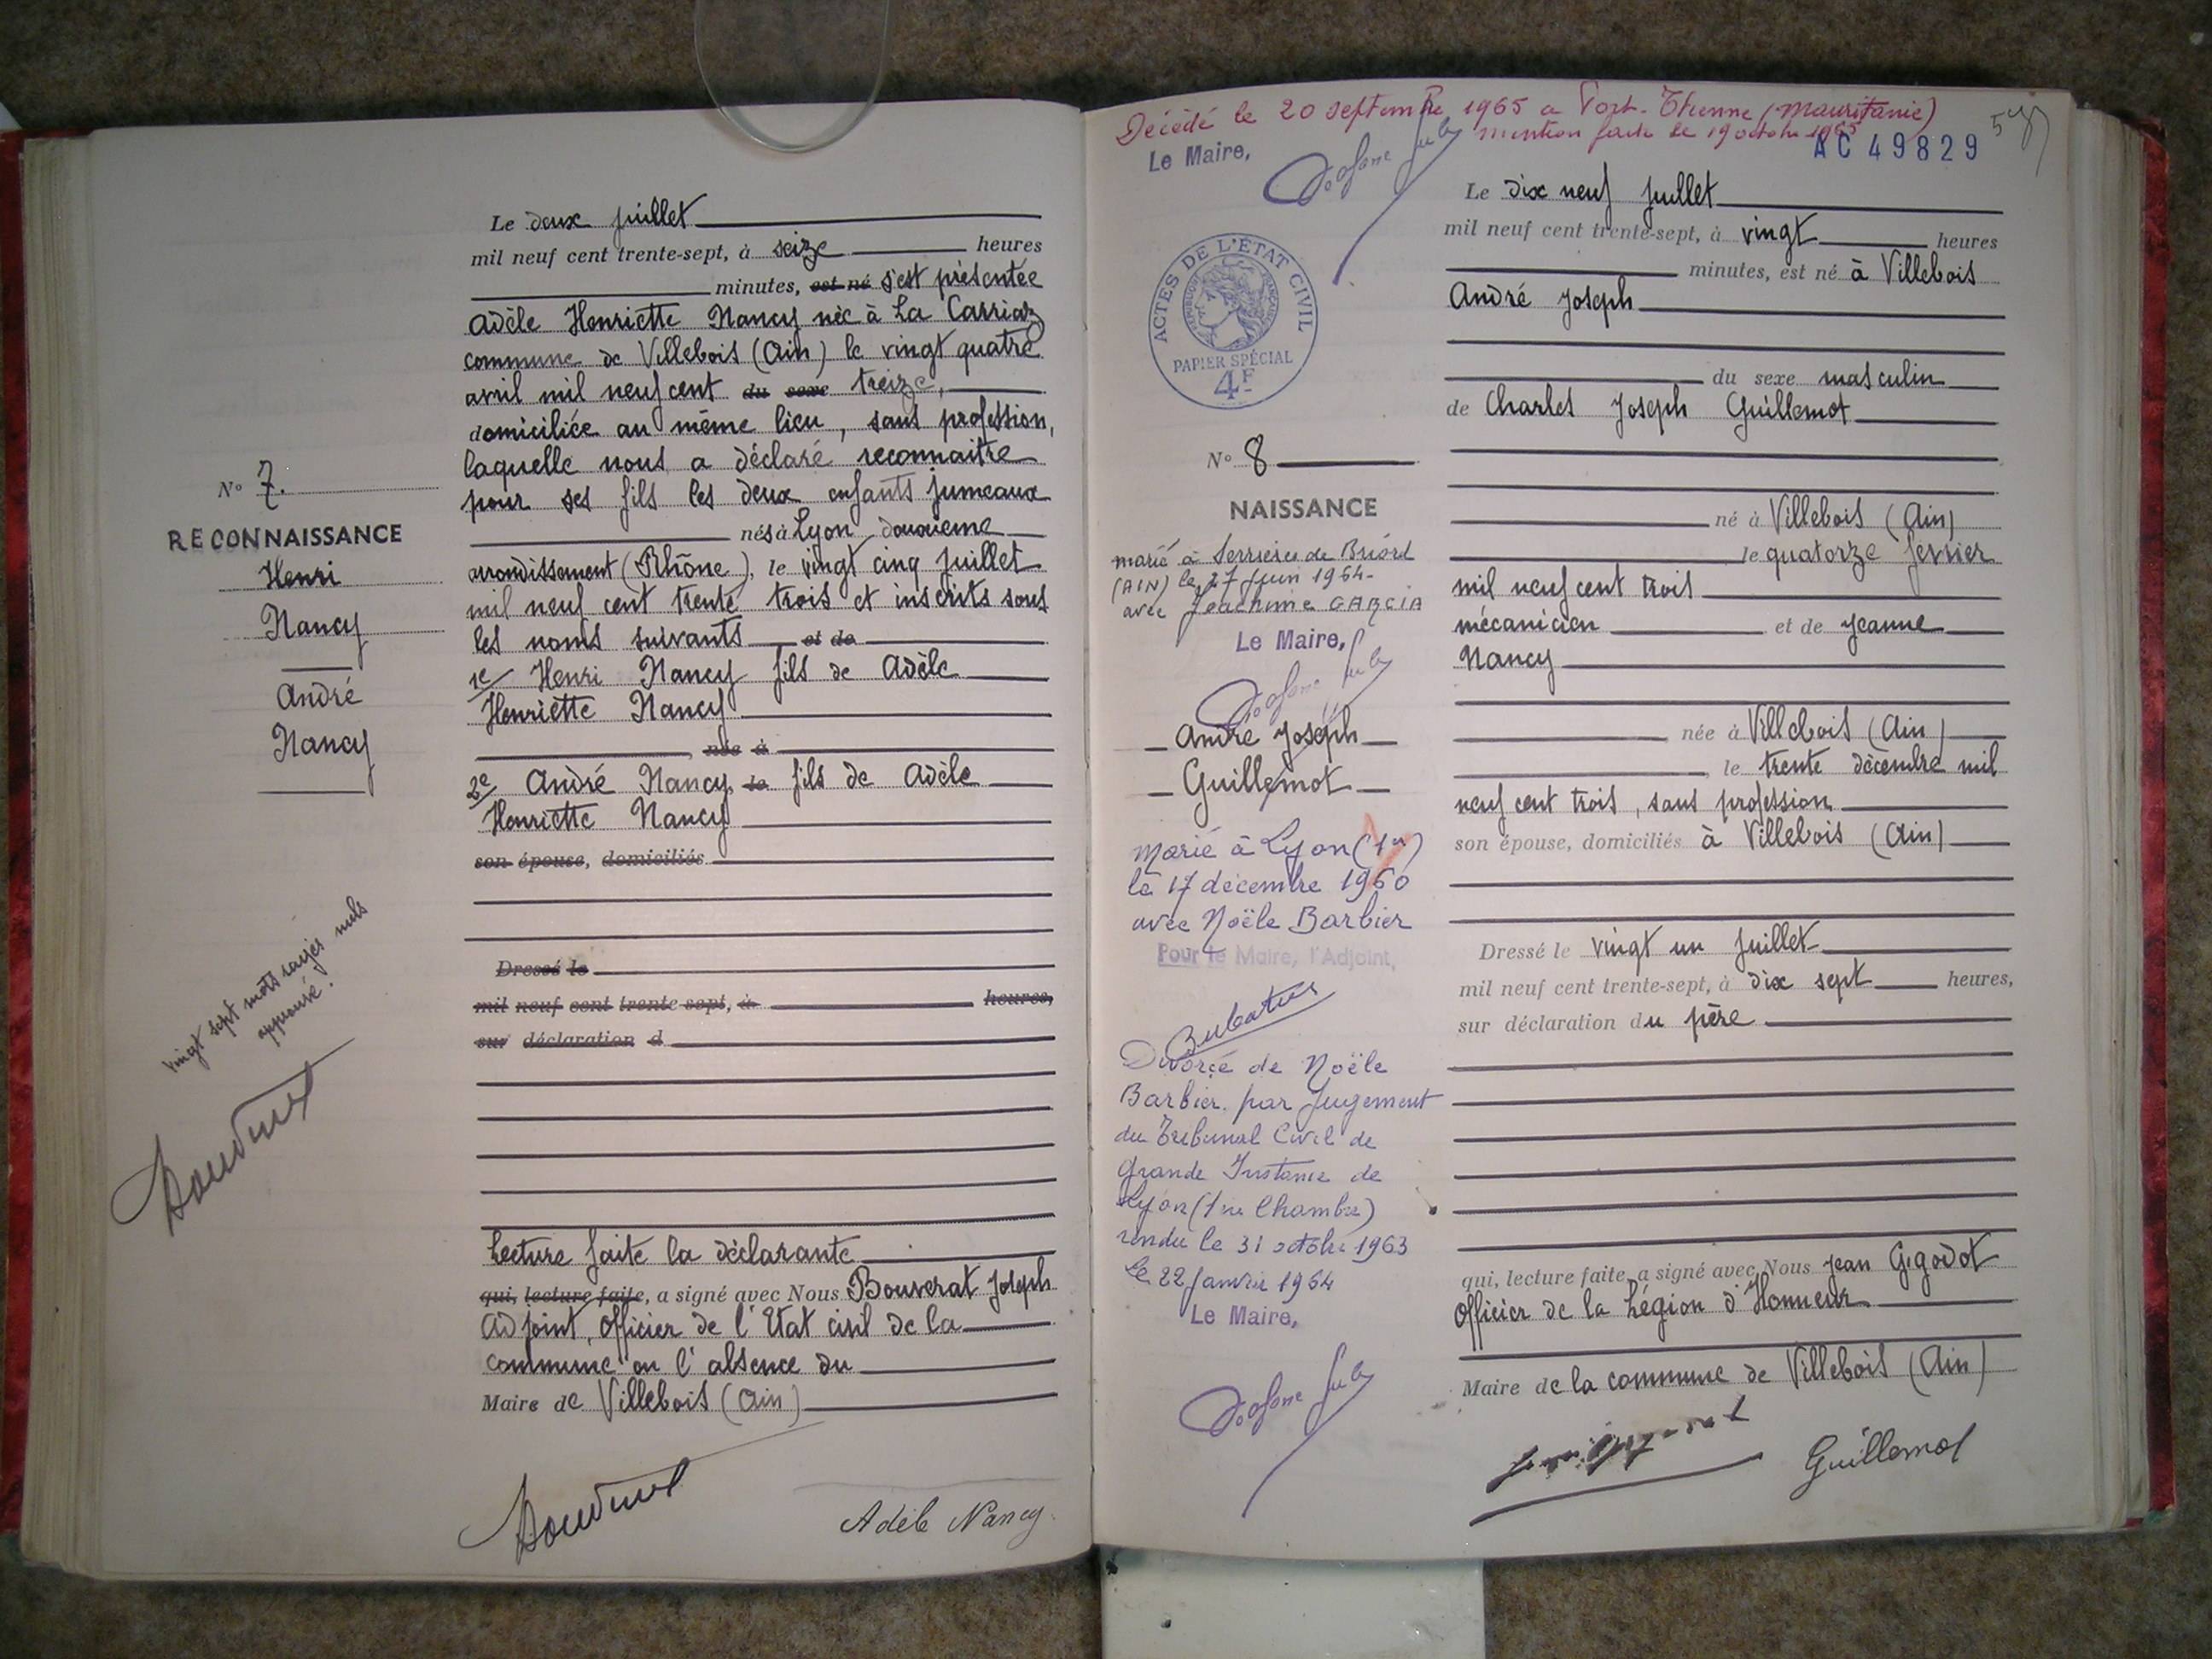 N° 7.
RECONNAISSANCE
Henri
Nancy
André
Nancy
vingt sept mots rayés nuls
approuvé.
Le deux juillet
mil neuf cent trente-sept, à seize heures
minutes, est né s'est présentée
Adèle Henriette Nancy née à La Carriaz
commune de Villebois (Ain) le vingt quatre
avril mil neuf cent du sexe treize,
domiciliée au même lieu, sans profession,
laquelle nous a déclaré reconnaitre
pour ses fils les deux enfants jumeaux
nés à Lyon deuxieme
arrondissement (Rhône), le vingt cinq juillet
mil neuf cent trente trois et inscrits sous
les noms suivants et de
1e/ Henri Nancy fils de Adèle
Henriette Nancy
, née à
2e/ André Nancy, le fils de Adèle
Henriette Nancy
son épouse, domiciliés
Dressé le
mil neuf cent trente-sept, à heures,
sur déclaration d
Lecture faite la déclarante
qui, lecture faite, a signé avec Nous Bouverat Joseph
Adjoint, officier de l'Etat civil de la
commune en l'absence du
Maire de Villebois (Ain)
Adèle Nancy
Décédé le 20 septembre 1965 a Port-Etienne (Mauritanie)
mention faite le 19 octobre 1965
Le Maire,
AC 49829
ACTES DE L'ÉTAT CIVIL
RÉPUBLIQUE FRANÇAISE
PAPIER SPÉCIAL
4F
N° 8
NAISSANCE
marié à Serrières de Briord
(AIN) le 27 juin 1964-
avec Joachime GARCIA
Le Maire,
André Joseph
Guillemot
marié à Lyon (1er)
le 17 décembre 1960
avec Noële Barbier
Pour le Maire, l'Adjoint,
Divorcé de Noële
Barbier par jugement
du Tribunal Civil de
Grande Instance de
Lyon (1re Chambre)
rendu le 31 octobre 1963
Le 22 Janvier 1964
Le Maire,
Le dix neuf juillet
mil neuf cent trente-sept, à vingt heures
minutes, est né à Villebois
André Joseph
du sexe masculin
de Charles Joseph Guillemot
né à Villebois (Ain)
le quatorze février
mil neuf cent trois
mécanicien et de Jeanne
Nancy
née à Villebois (Ain)
, le trente décembre mil
neuf cent trois, sans profession
son épouse, domiciliés à Villebois (Ain)
Dressé le vingt un juillet
mil neuf cent trente-sept, à dix sept heures,
sur déclaration du père
qui, lecture faite, a signé avec Nous Jean Gigodot
Officier de la Légion d'Honneur
Maire de la commune de Villebois (Ain)
Guillemot